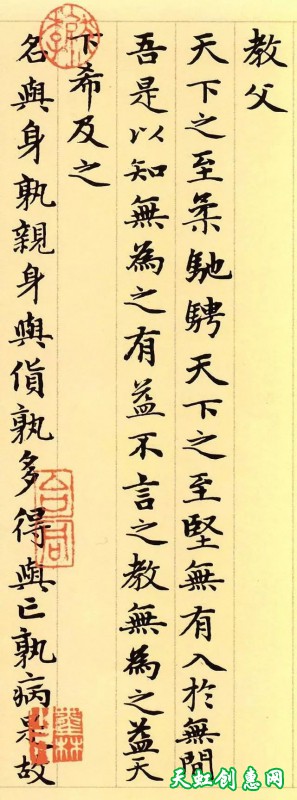 教父
天下之至柔馳騁天下之至堅無有入於無間
吾是以知無為之有益不言之教無為之益天
下希及之
名與身孰親身與貨孰多得與亡孰病是故
天虹创惠网